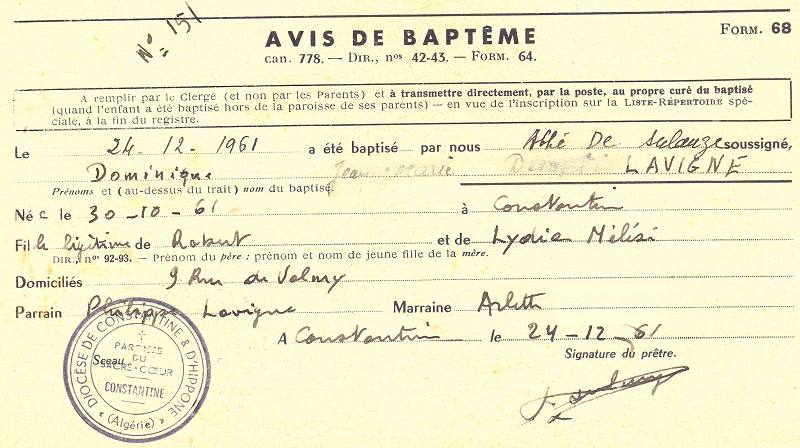 N° 151
FORM. 68
AVIS DE BAPTÊME
CAN. 778. — DIR., nos 42-43. — FORM. 64.
A remplir par le Clergé (et non par les Parents) et à transmettre directement, par la poste, au propre curé du baptisé
(quand l'enfant a été baptisé hors de la paroisse de ses parents) — en vue de l'inscription sur la LISTE-RÉPERTOIRE spé-
ciale, à la fin du registre.
Le 24-12-1961 a été baptisé par nous Abbé De soussigné,
Dominique Jean-Marie LAVIGNE
Prénoms et (au-dessus du trait) nom du baptisé
Née le 30-10-61 à Constantine
Fille légitime de Robert et de Lydia Mélési
DIR., nos 92-93. - Prénom du père ; prénom et nom de jeune fille de la mère.
Domiciliés 9 Rue de Valmy
Parrain Philippe Lavigne Marraine Arlette
A Constantine le 24-12-61
Signature du prêtre.
Sceau
DIOCÈSE DE CONSTANTINE & D'HIPPONE
PAROISSE
DU
SACRÉ-CŒUR
CONSTANTINE
(Algérie)